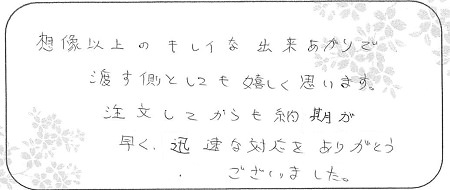 想像以上のキレイな出来あがりで
渡す側としても嬉しく思います。
注文してからも納期が
早く、迅速な対応をありがとう
ございました。